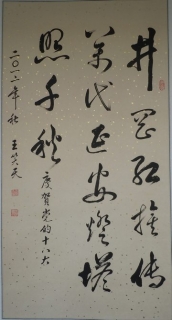 井冈红旗传
万代延安灯塔
照千秋 庆贺党的十八大
二〇一二年秋 王笑天